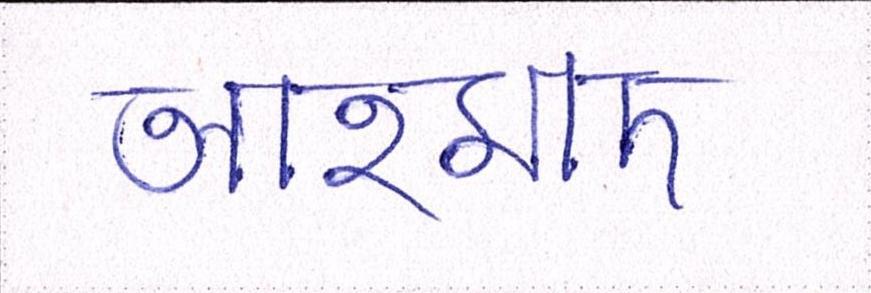 আহমাদ